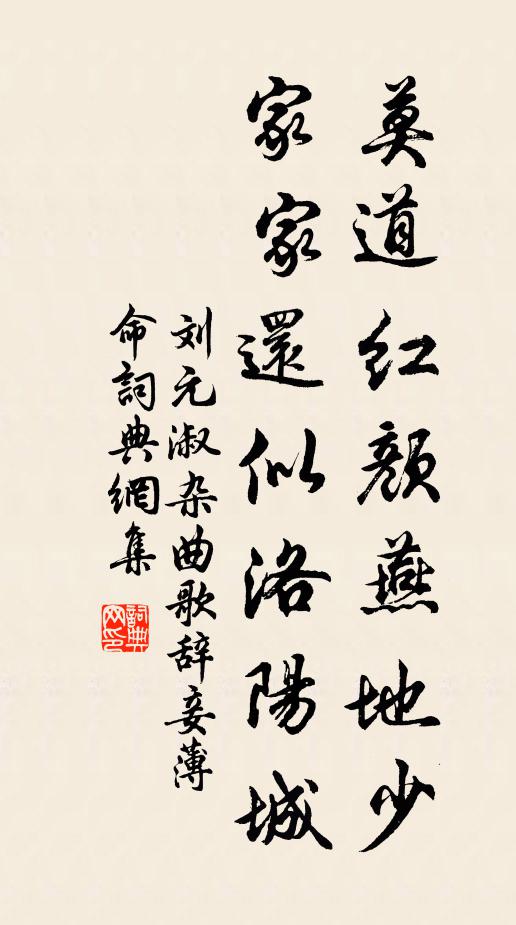 莫道红顔燕地少
家家還似洛陽城
刘元淑杂曲歌辞妾薄
命詞典網集
詞典网印